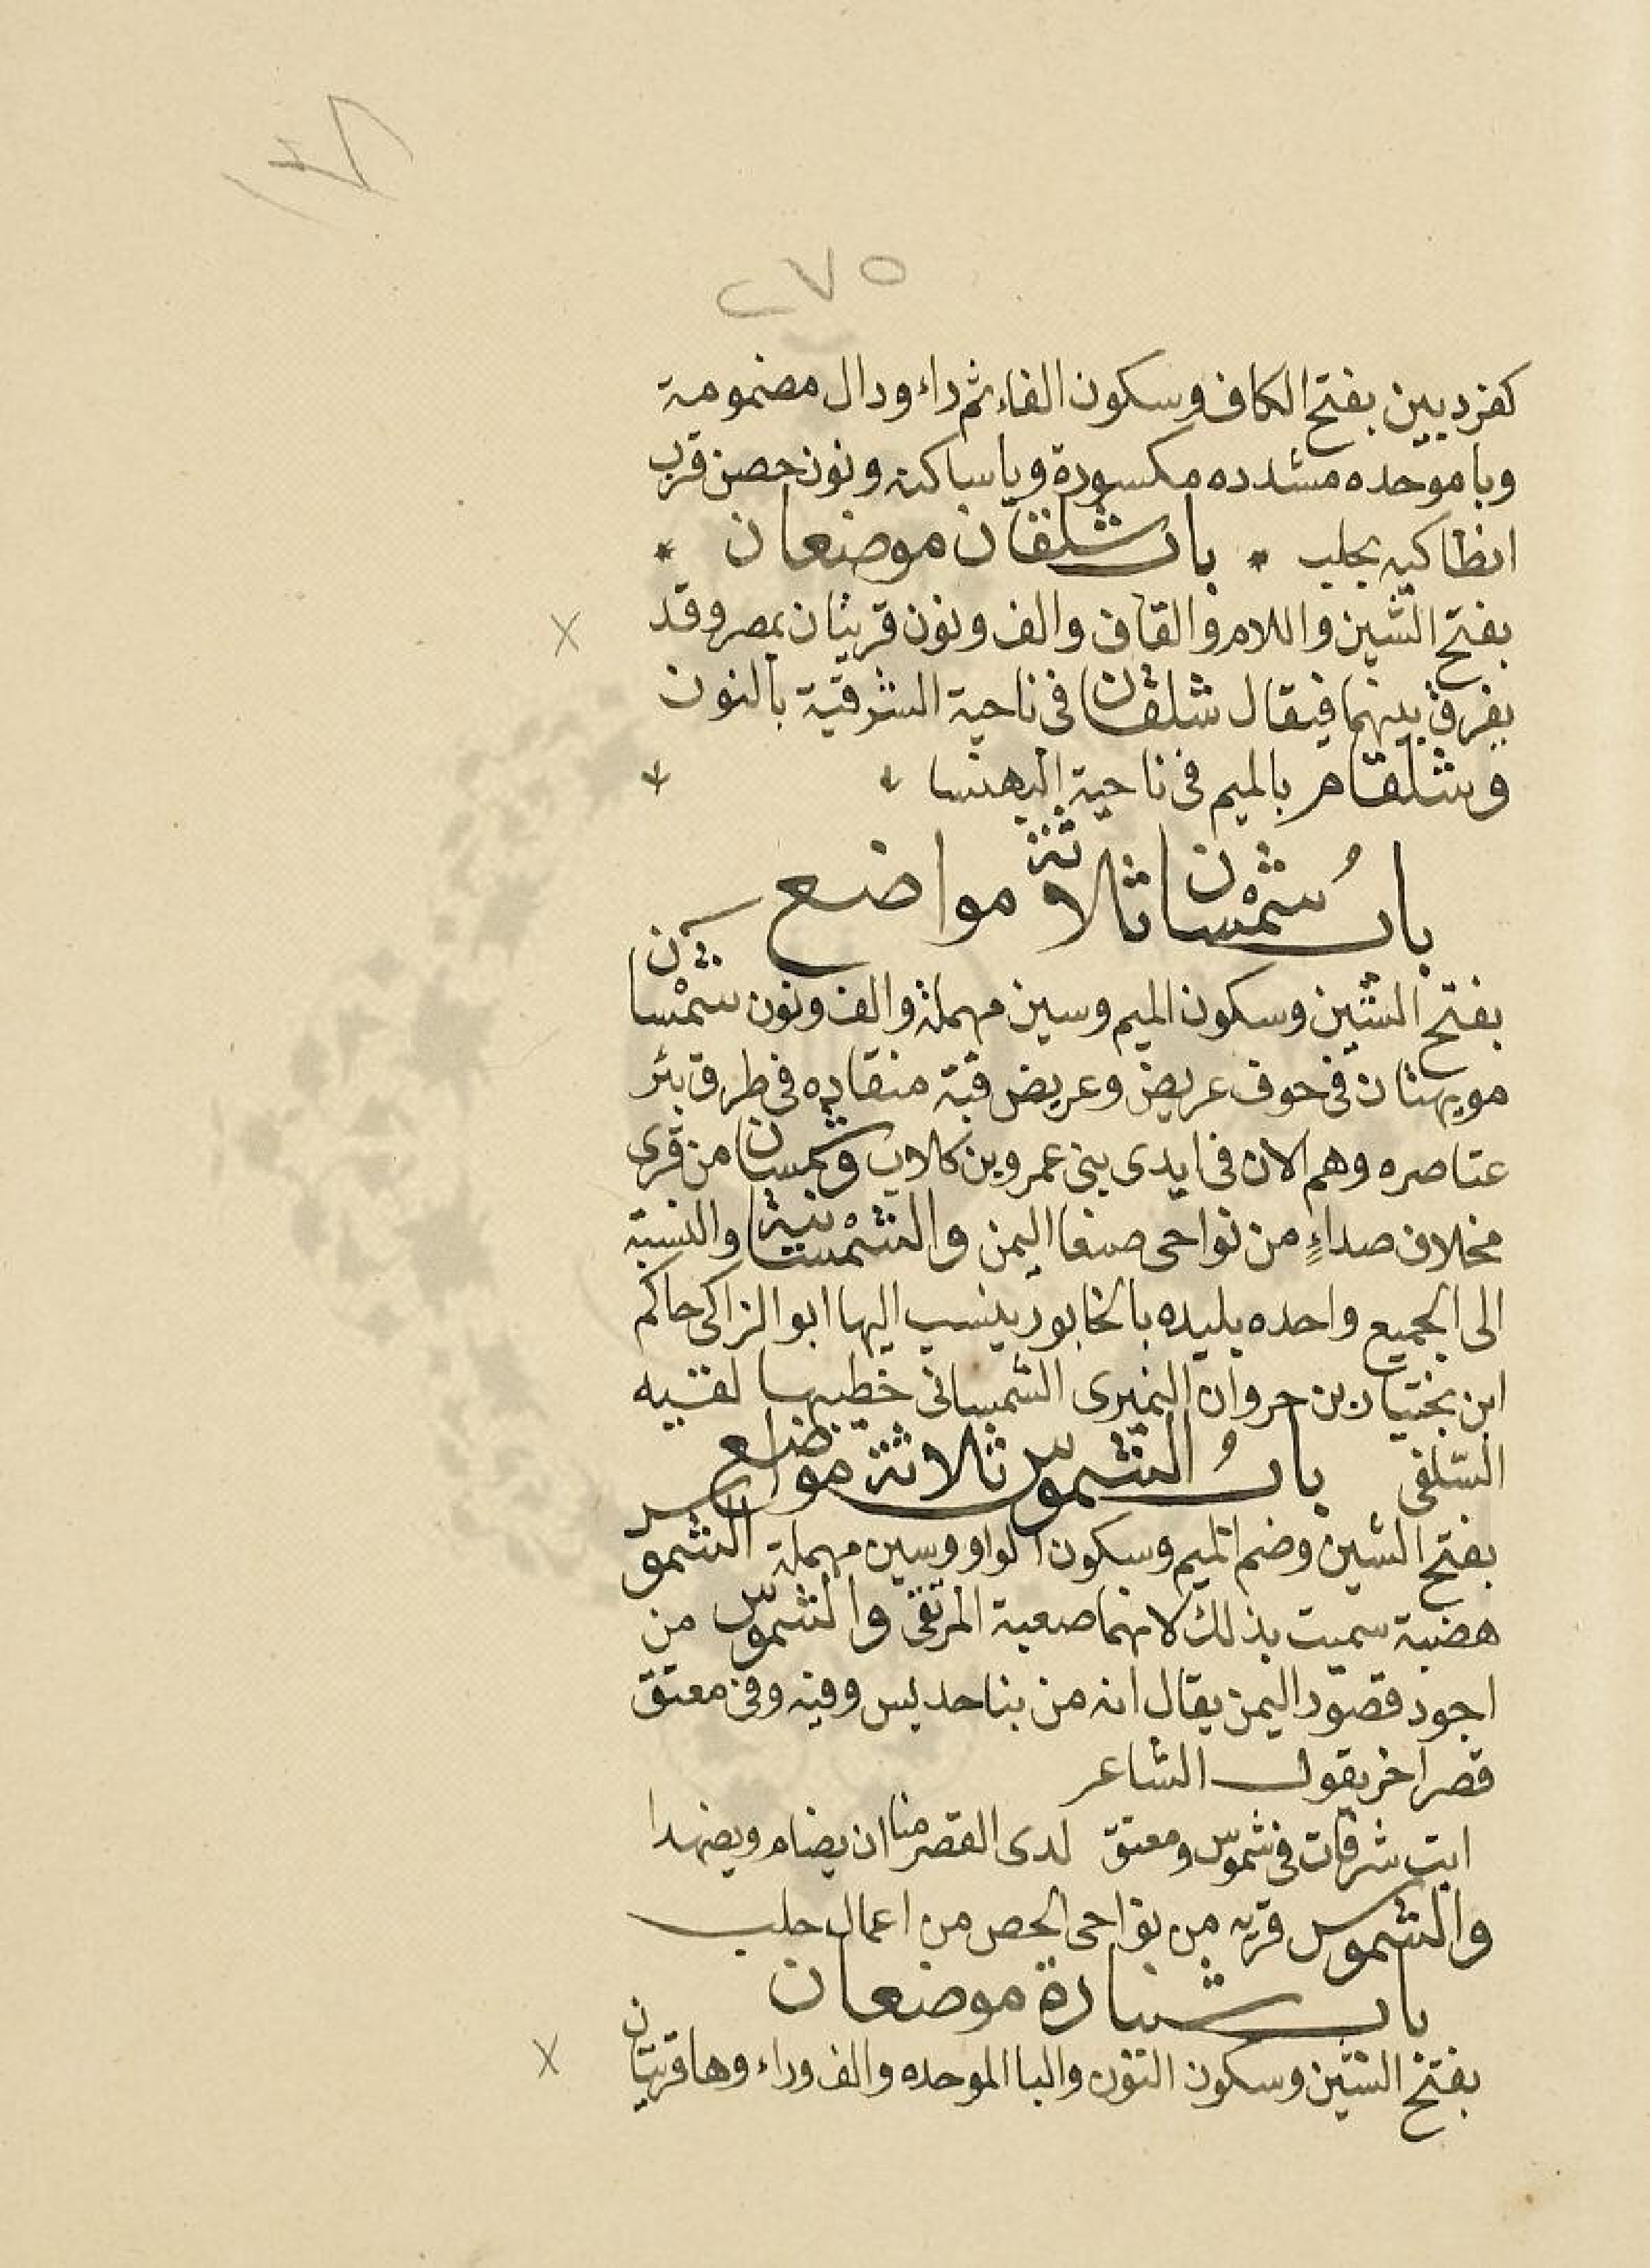 ١٣٨
٢٧٥
كفردبين بفتح الكاف وسكون الفاء ثم راء ودال مضمومة
وبا موحده مشدده مكسورة ويا ساكنه ونون حصن قرب
انطاكيه بحلب * باب شلقان موضعان *
بفتح الشين واللام والقاف والف ونون قريتان بمصر وقد
يفرق بينهما فيقال شلقان في ناحية الشرقية بالنون
وشلقام بالميم في ناحية البهنسا
بابُ شمْسان ثلاثة مواضع
بفتح الشين وسكون الميم وسين مهملة والف ونون شمْسان
مويهتان في حوف عريض وعريض قنة منقاده في طرق بئر
عتاصره وهم الان في ايدى بني عمرو بن كلاب وشمسان من قرى
مخلاف صداءٍ من نواحى صنعا اليمن والشمْسانية والنسبة
الى الجميع واحده بليده بالخابور ينسب اليها ابو الزاكى حاكم
ابن بختيار بن حروان النميرى الشمسانى خطيبها لقيه
السّلفى بابُ الشموس ثلاثة مواضع
بفتح الشين وضم الميم وسكون الواو وسين مهملة الشموس
هضبة سميت بذلك لانهما صعبة المرتقى والشموس من
اجود قصور اليمن يقال انه من بنا حديس وفيه وفى معتق
قصر اخر يقول الشاعر
ابت شرفات في شموس ومعتق لدى القصر منا ان يضام ويضهدا
والشموس قريه من نواحى الحص من اعمال حلب
باب شنبارة موضعان
بفتح الشين وسكون النون والبا الموحده والف وراء وها قريتان